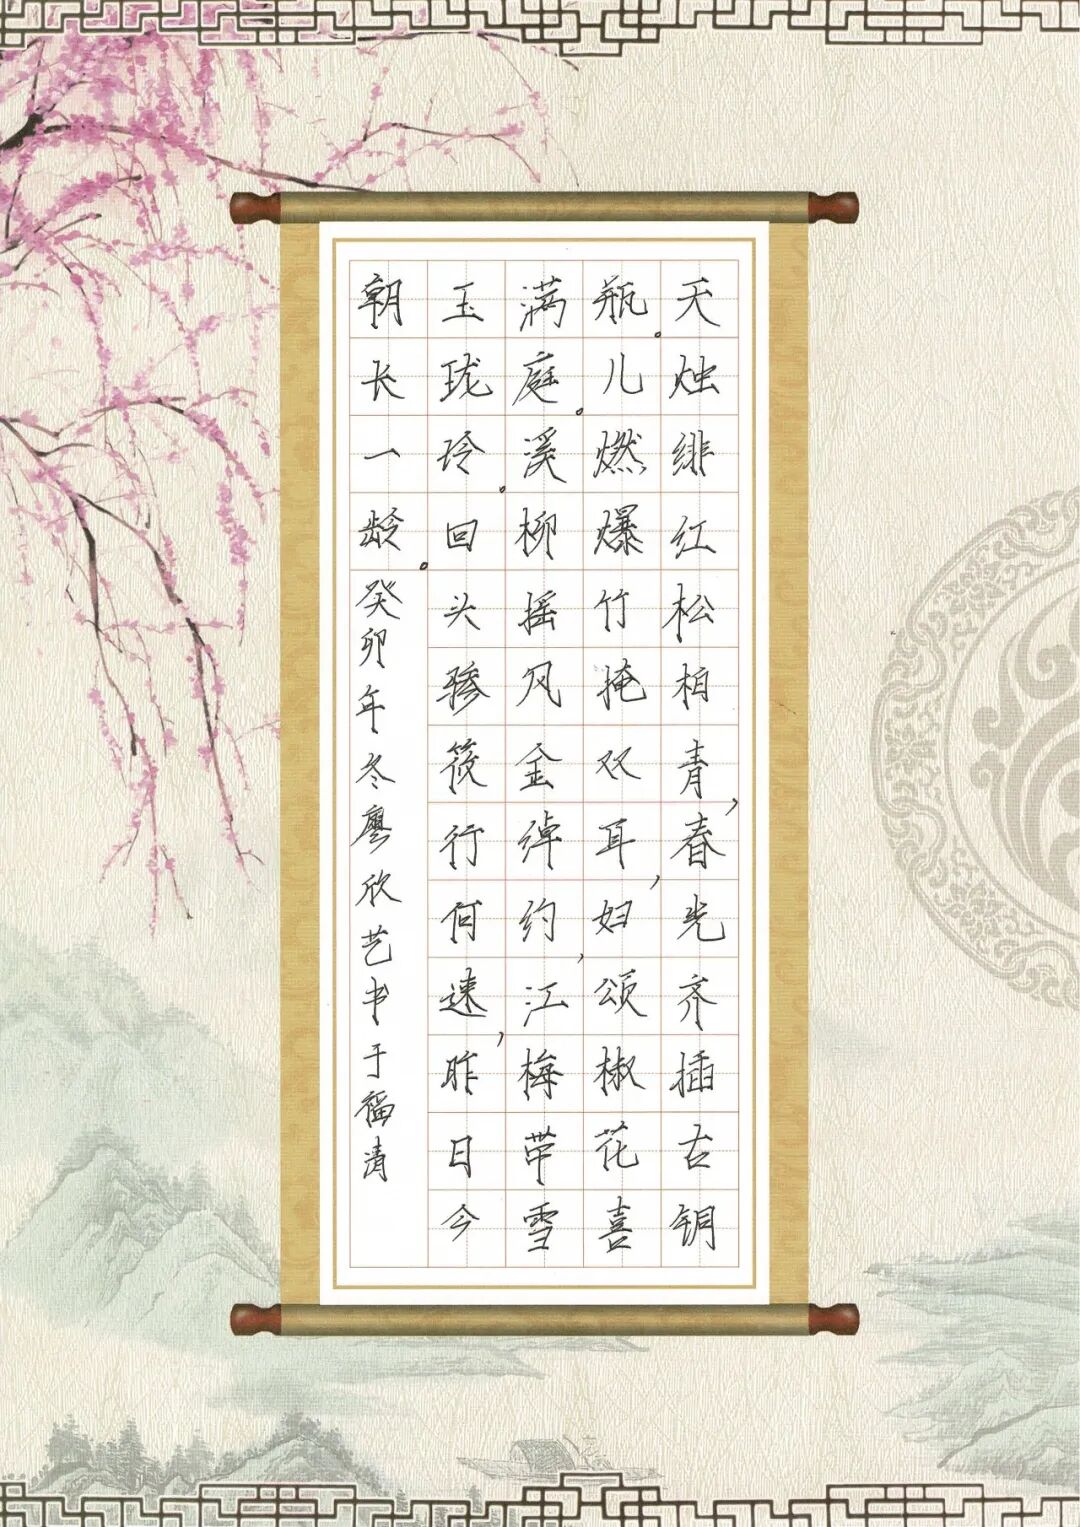 天烛绯红松柏青，春光齐插古铜
瓶。儿燃爆竹掩双耳，妇颂椒花喜
满庭。溪柳摇风金绰约，江梅带雪
玉珑玲。回头骖筱行何速，昨日今
朝长一龄。癸卯年冬廖欣艺书于福清